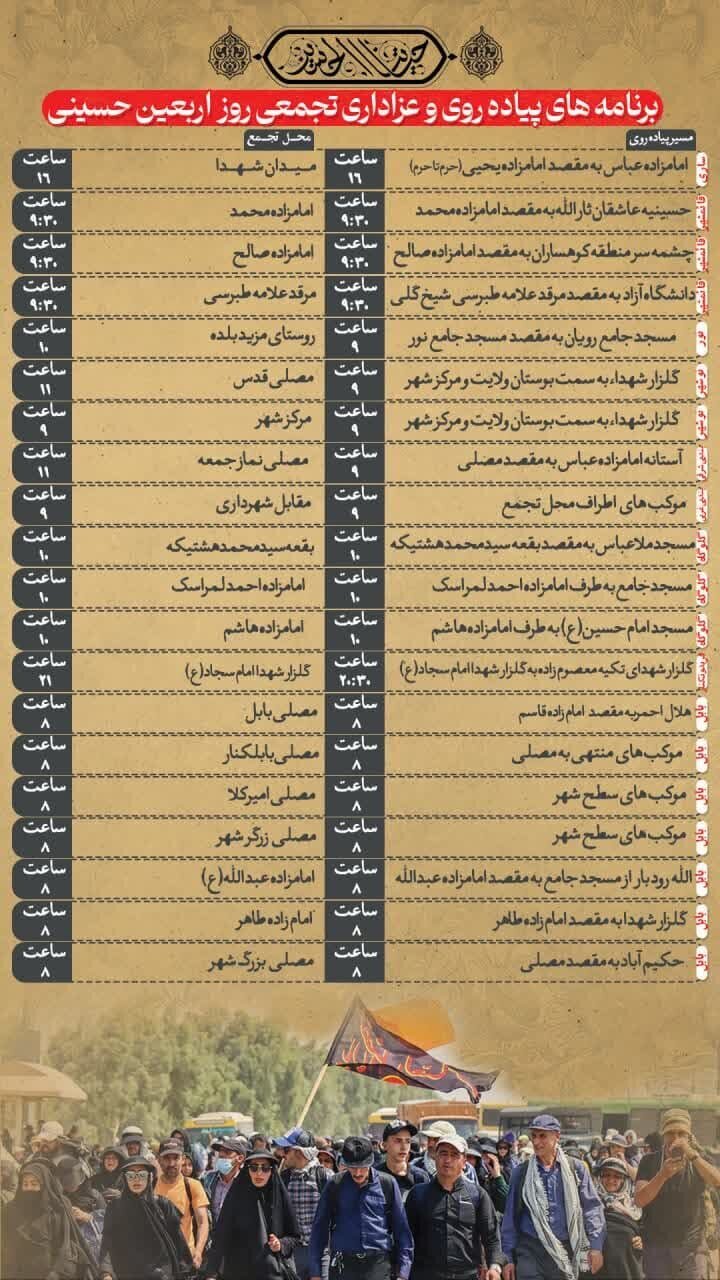 برنامه های پیاده روی و عزاداری تجمعی روز اربعین حسینی
مسیر پیاده روی محل تجمع
ساری امامزاده عباس به مقصد امامزاده یحیی (حرم تا حرم) ساعت ۱۶ میدان شهدا ساعت ۱۶
قائمشهر حسینیه عاشقان ثارالله به مقصد امامزاده محمد ساعت ۹:۳۰ امامزاده محمد ساعت ۹:۳۰
قائمشهر چشمه سر منطقه کوهساران به مقصد امامزاده صالح ساعت ۹:۳۰ امامزاده صالح ساعت ۹:۳۰
قائمشهر دانشگاه آزاد به مقصد مرقد علامه طبرسی شیخ گلی ساعت ۹:۳۰ مرقد علامه طبرسی ساعت ۹:۳۰
نور مسجد جامع رویان به مقصد مسجد جامع نور ساعت ۹ روستای مزیدبلده ساعت ۱۰
نوشهر گلزار شهداء به سمت بوستان ولایت و مرکز شهر ساعت ۹ مصلی قدس ساعت ۱۱
نوشهر گلزار شهداء به سمت بوستان ولایت و مرکز شهر ساعت ۹ مرکز شهر ساعت ۹
آستانه امامزاده عباس به مقصد مصلی ساعت ۹ مصلی نماز جمعه ساعت ۱۱
موکب های اطراف محل تجمع ساعت ۹ مقابل شهرداری ساعت ۹
گلوگاه مسجد ملاعباس به مقصد بقعه سید محمد هشتیکه ساعت ۱۰ بقعه سید محمد هشتیکه ساعت ۱۰
گلوگاه مسجد جامع به طرف امامزاده احمد لمراسک ساعت ۱۰ امامزاده احمد لمراسک ساعت ۱۰
گلوگاه مسجد امام حسین (ع) به طرف امامزاده هاشم ساعت ۱۰ امامزاده هاشم ساعت ۱۰
فریدونکنار گلزار شهدای تکیه معصوم زاده به گلزار شهدا امام سجاد (ع) ساعت ۲۰:۳۰ گلزار شهدا امام سجاد (ع) ساعت ۲۱
بابل هلال احمر به مقصد امام زاده قاسم ساعت ۸ مصلی بابل ساعت ۸
بابل موکب های منتهی به مصلی ساعت ۸ مصلی بابلکنار ساعت ۸
بابل موکب های سطح شهر ساعت ۸ مصلی امیرکلا ساعت ۸
بابل موکب های سطح شهر ساعت ۸ مصلی زرگر شهر ساعت ۸
بابل الله رودبار از مسجد جامع به مقصد امامزاده عبدالله ساعت ۸ امامزاده عبدالله (ع) ساعت ۸
بابل گلزار شهدا به مقصد امام زاده طاهر ساعت ۸ امام زاده طاهر ساعت ۸
بابل حکیم آباد به مقصد مصلی ساعت ۸ مصلی بزرگ شهر ساعت ۸